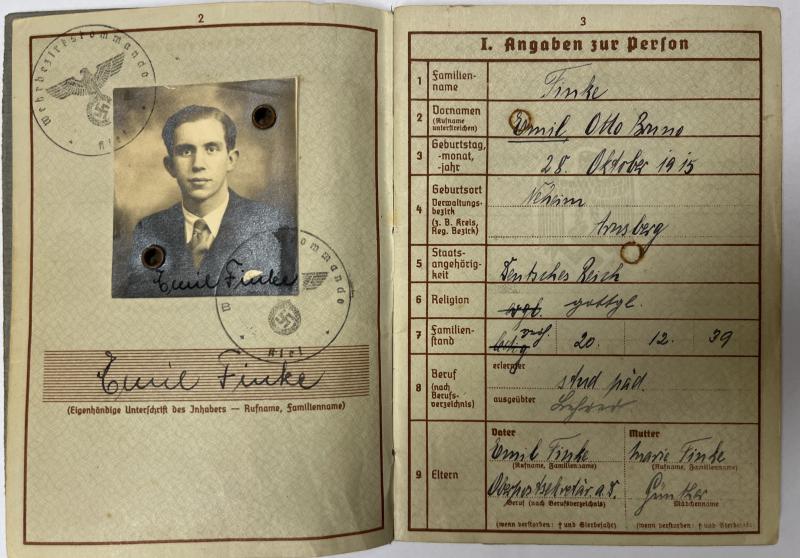 2
Wehrbezirkskommando
Kiel
Emil Finke
Wehrbezirkskommando
Kiel
Emil Finke
(Eigenhändige Unterschrift des Inhabers — Rufname, Familienname)
3
I. Angaben zur Person
1 Familienname Finke
2 Vornamen (Rufname unterstreichen) Emil Otto Bruno
3 Geburtstag, -monat, -jahr 28. Oktober 1915
4 Geburtsort Verwaltungsbezirk (z. B. Kreis, Reg. Bezirk) Neheim
Arnsberg
5 Staatsangehörigkeit Deutsches Reich
6 Religion evgl. gottgl.
7 Familienstand ledig verh. 20. 12. 39
8 Beruf (nach Berufsverzeichnis) erlernter stud päd.
ausgeübter Lehrer
9 Eltern
Vater Mutter
Emil Finke Marie Finke
(Rufname, Familienname) (Rufname, Familienname)
Oberpostsekretär a.D. Günther
Beruf (nach Berufsverzeichnis) Mädchenname
(wenn verstorben: † und Sterbejahr) (wenn verstorben: † und Sterbejahr)